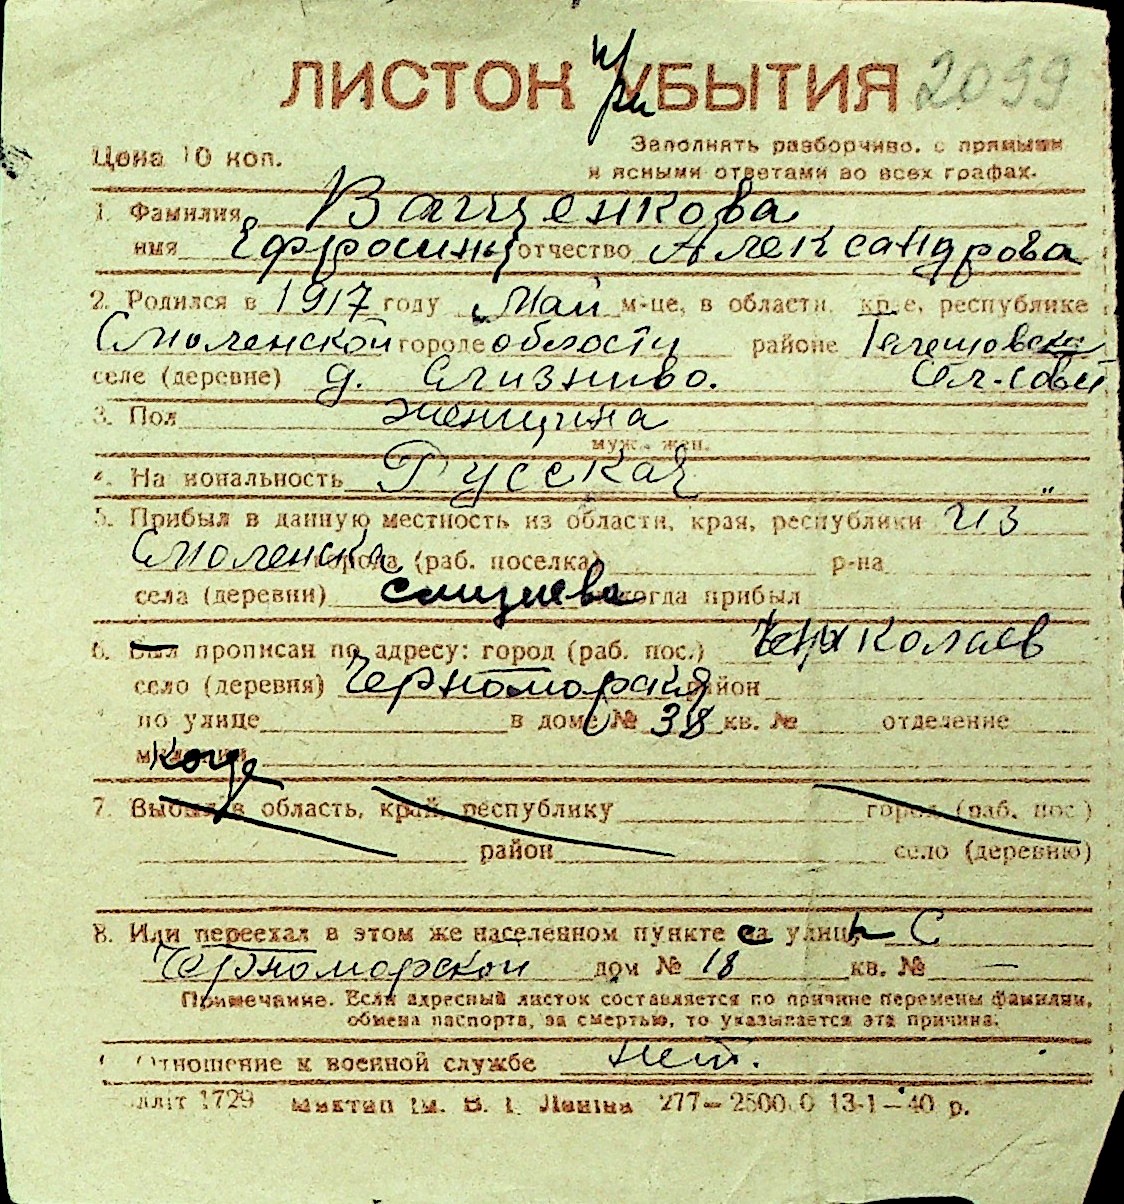 ЛИСТОК УБЫТИЯ при 2099
Цена 10 коп.
Заполнять разборчиво, с прямыми
и ясными ответами во всех графах.
1. Фамилия Ващенкова
имя Ефросинья отчество Александрова
2. Родился в 1917 году Май м-це, в области, крае, республике
Смоленской городе области районе
селе (деревне) д. Слизнево. Сел-совет
3. Пол женщина
муж. жен.
4. Национальность Русская
5. Прибыл в данную местность из области, края, республики из
Смоленска города (раб. поселка) р-на
села (деревни) когда прибыл
6. Был прописан по адресу: город (раб. пос.) Николаев
село (деревня) Черноморская район
по улице в доме № 38 кв. № отделение
милиции
7. Выбыл в область, край, республику город (раб. пос.)
район село (деревню)
8. Или переехал в этом же населенном пункте са улицы С
Черноморской дом № 18 кв. № —
Примечание. Если адресный листок составляется по причине перемены фамилии,
обмена паспорта, за смертью, то указывается эта причина.
Отношение к военной службе нет.
1729 ім. В. І. Леніна 277—2500.0 13-1—40 р.